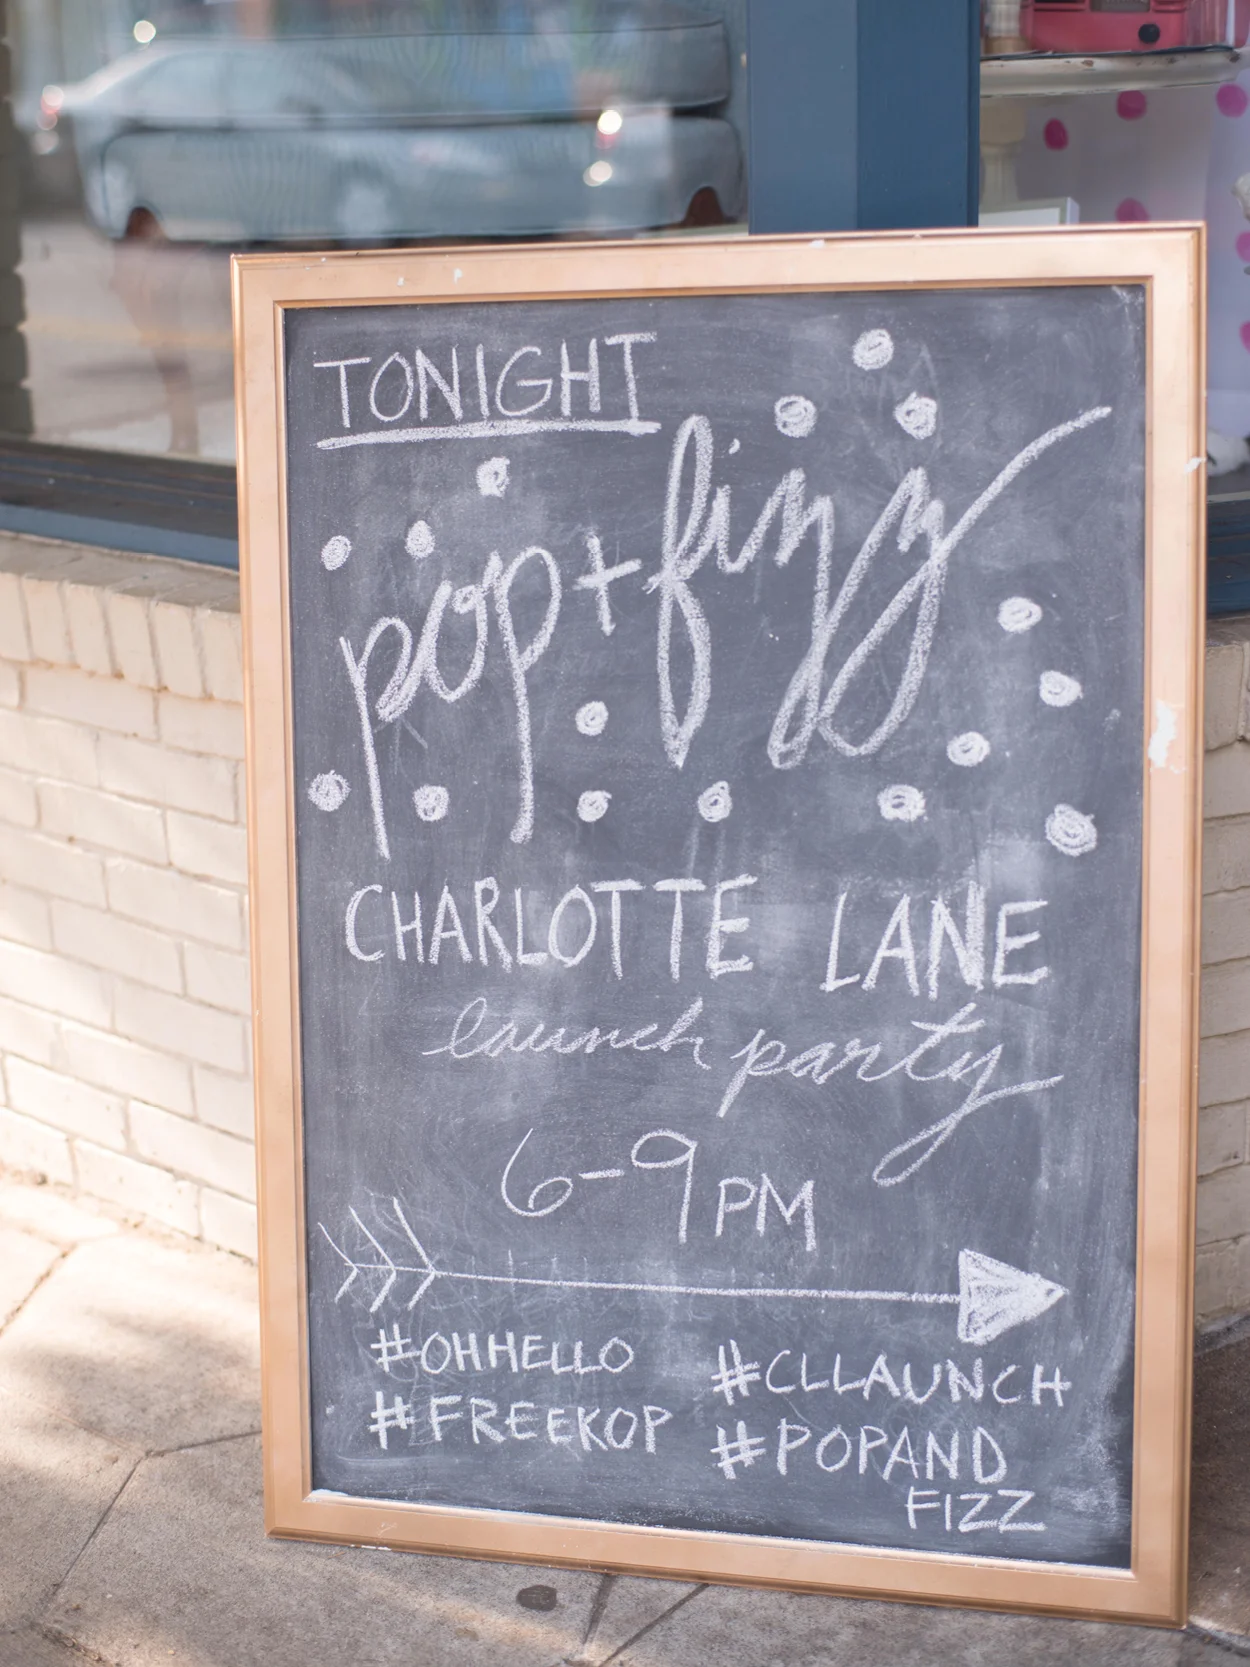 TONIGHT
pop + fizz
CHARLOTTE LANE
launch party
6-9 PM
#OHHELLO
#FREEKOP
#CLLAUNCH
#POPAND
FIZZ